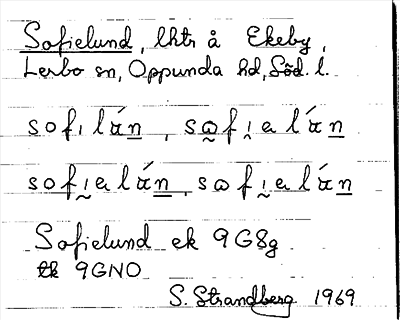 Sofielund, lht: å Ekeby,
Lerbo sn, Oppunda hd, Söd. l.
sofilán, sofialán
sofialán, sofialán
Sofielund ek 9G8g
ek 9GNO
S. Strandberg 1969